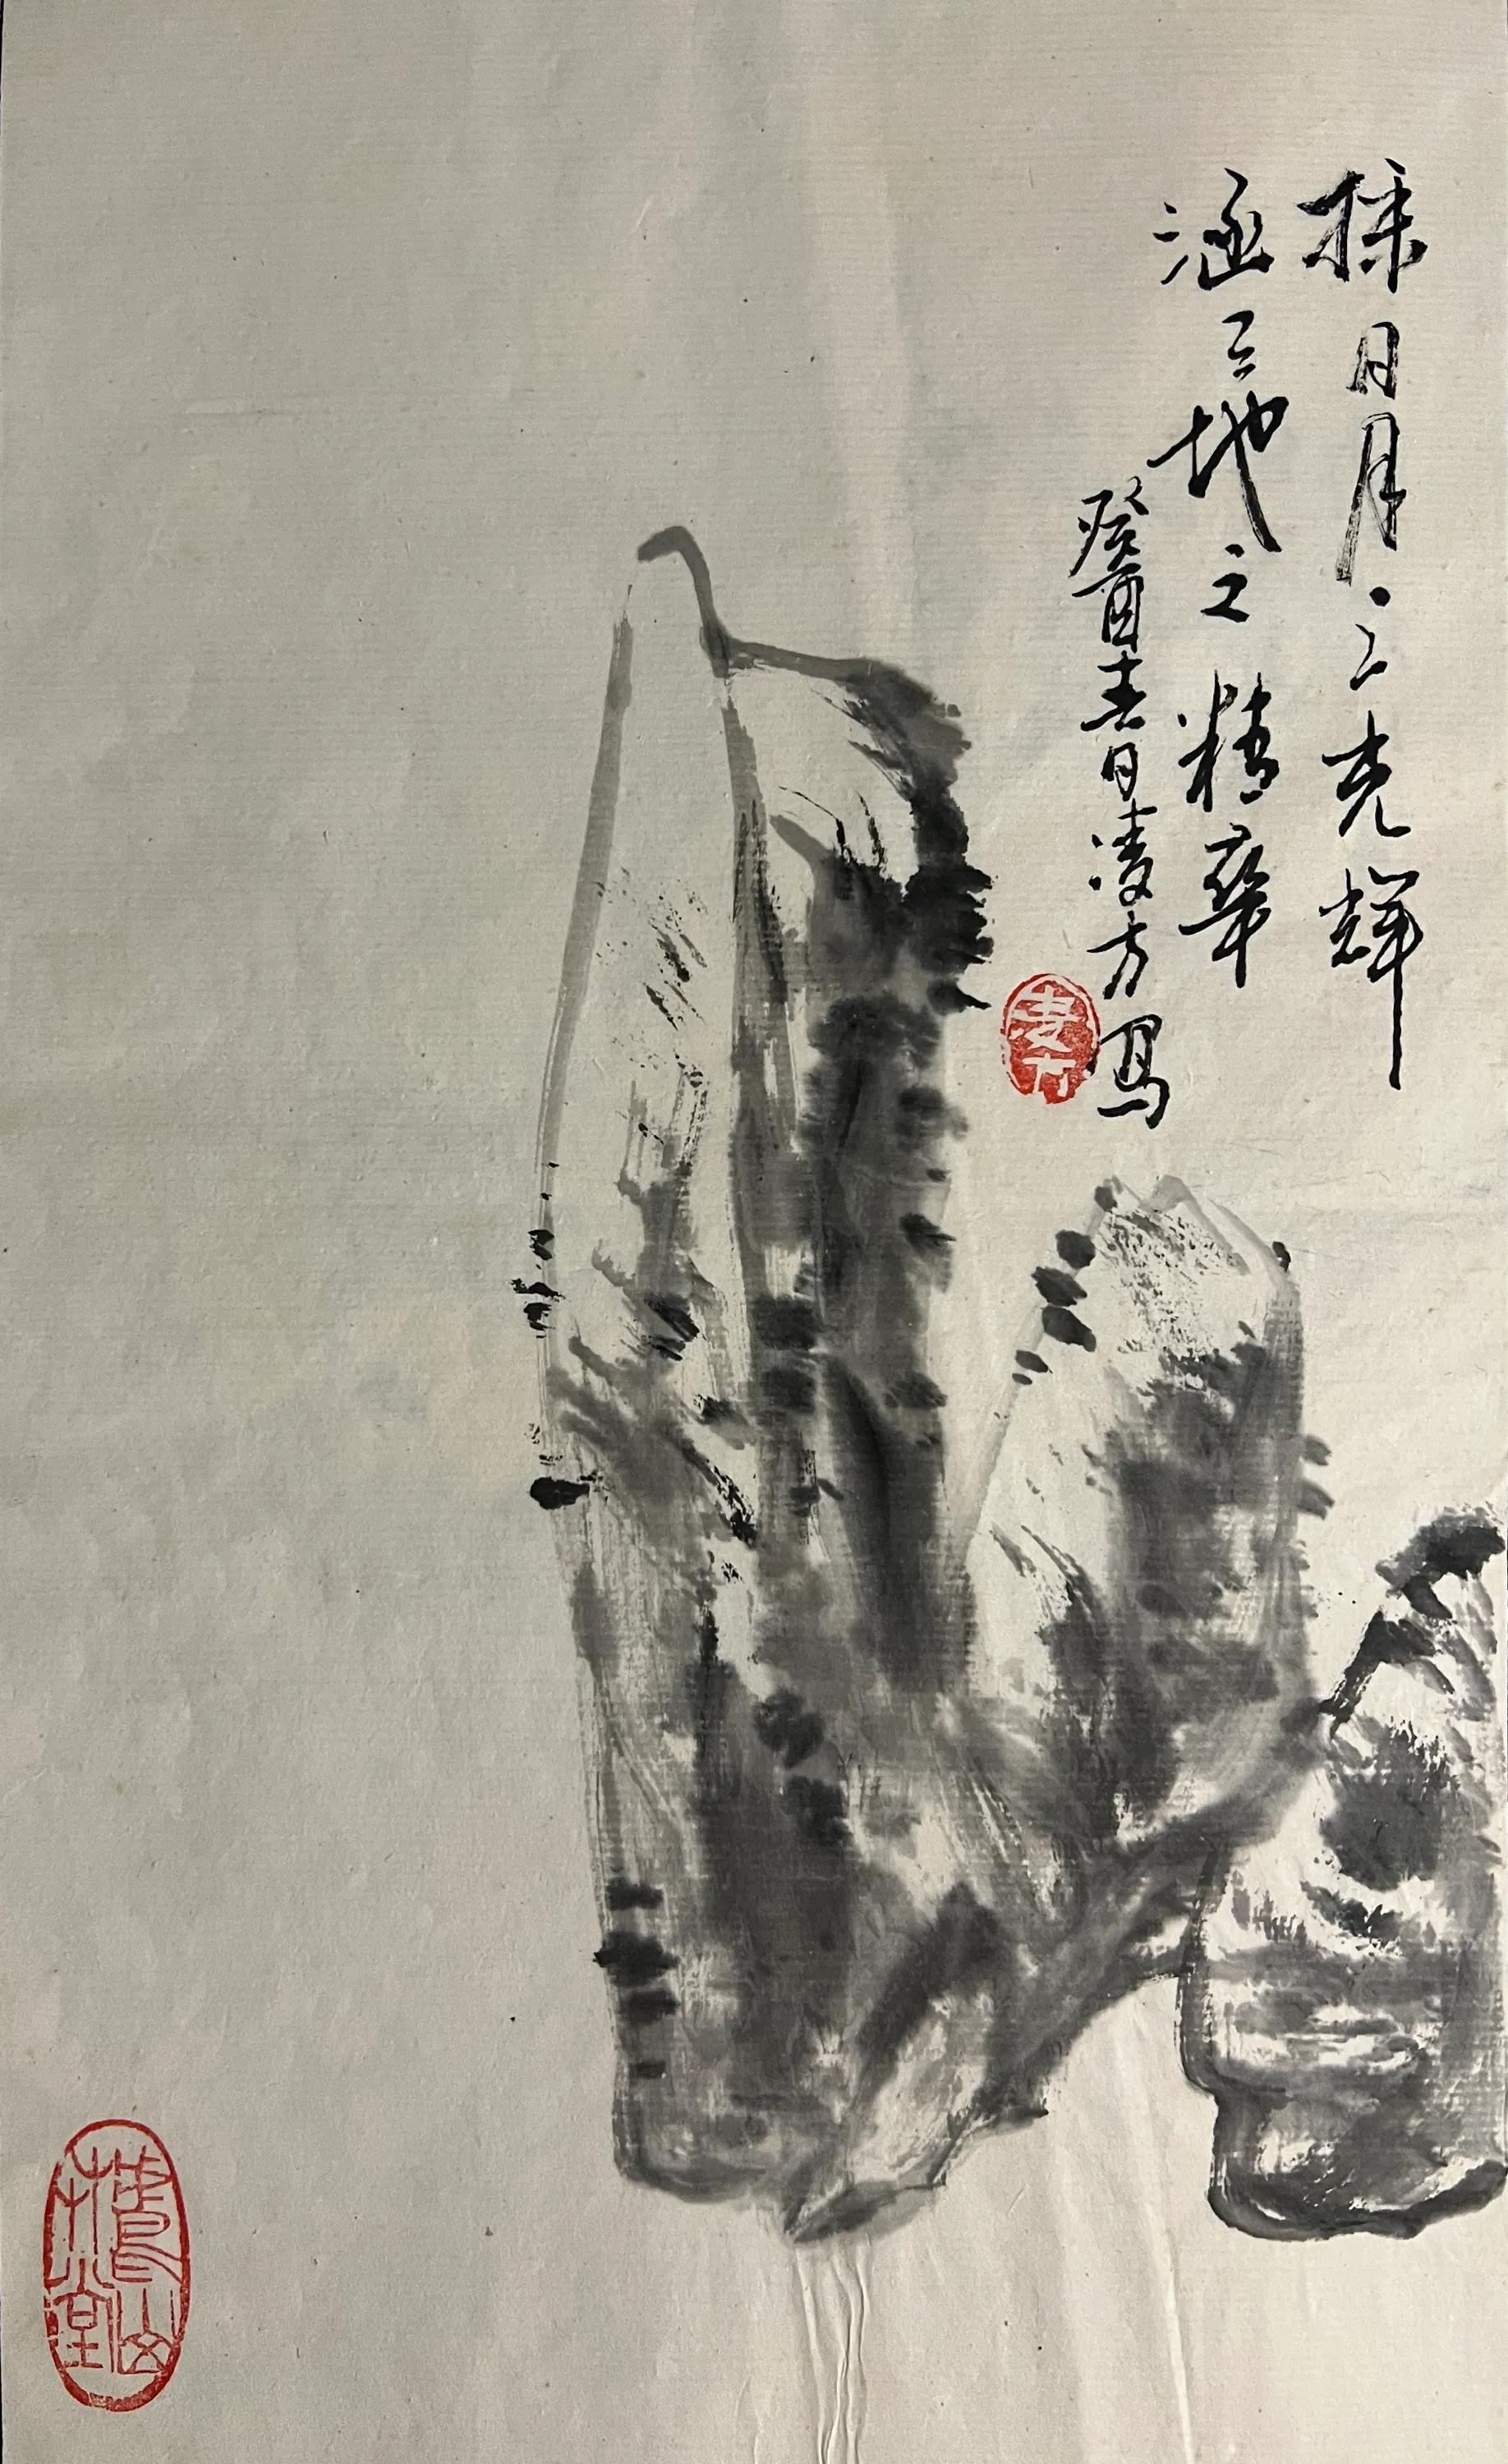 採日月之光輝
涵天地之精華
癸酉春日凌方寫